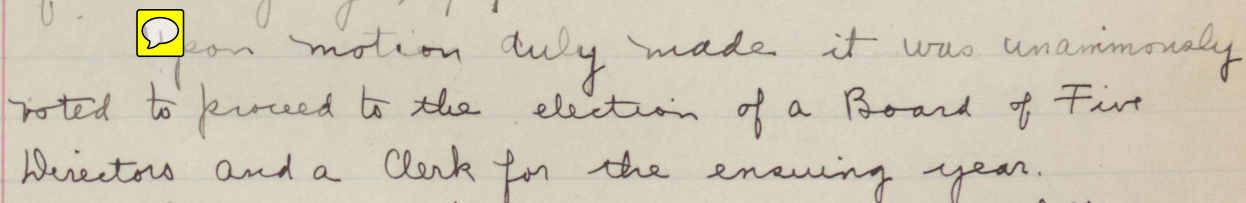 Upon motion duly made it was unanimously
voted to proceed to the election of a Board of Five
Directors and a Clerk for the ensuing year.